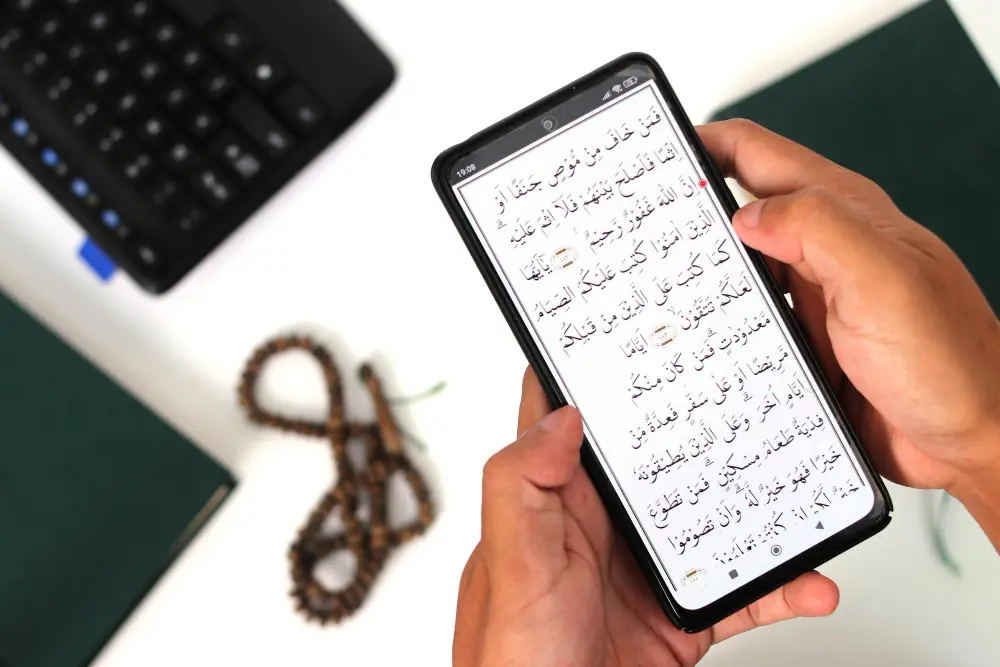 19:08
فَمَنْ خَافَ مِنْ مُّوْصٍ جَنَفًا اَوْ
اِثْمًا فَاَصْلَحَ بَيْنَهُمْ فَلَآ اِثْمَ عَلَيْهِ ۗ
اِنَّ اللّٰهَ غَفُوْرٌ رَّحِيْمٌ ࣖ يٰٓاَيُّهَا
الَّذِيْنَ اٰمَنُوْا كُتِبَ عَلَيْكُمُ الصِّيَامُ
كَمَا كُتِبَ عَلَى الَّذِيْنَ مِنْ قَبْلِكُمْ
لَعَلَّكُمْ تَتَّقُوْنَۙ اَيَّامًا
مَّعْدُوْدٰتٍۗ فَمَنْ كَانَ مِنْكُمْ
مَّرِيْضًا اَوْ عَلٰى سَفَرٍ فَعِدَّةٌ مِّنْ
اَيَّامٍ اُخَرَ ۗ وَعَلَى الَّذِيْنَ يُطِيْقُوْنَهٗ
فِدْيَةٌ طَعَامُ مِسْكِيْنٍۗ فَمَنْ تَطَوَّعَ
خَيْرًا فَهُوَ خَيْرٌ لَّهٗ ۗ وَاَنْ تَصُوْمُوْا
خَيْرٌ لَّكُمْ اِنْ كُنْتُمْ تَعْلَمُوْنَ